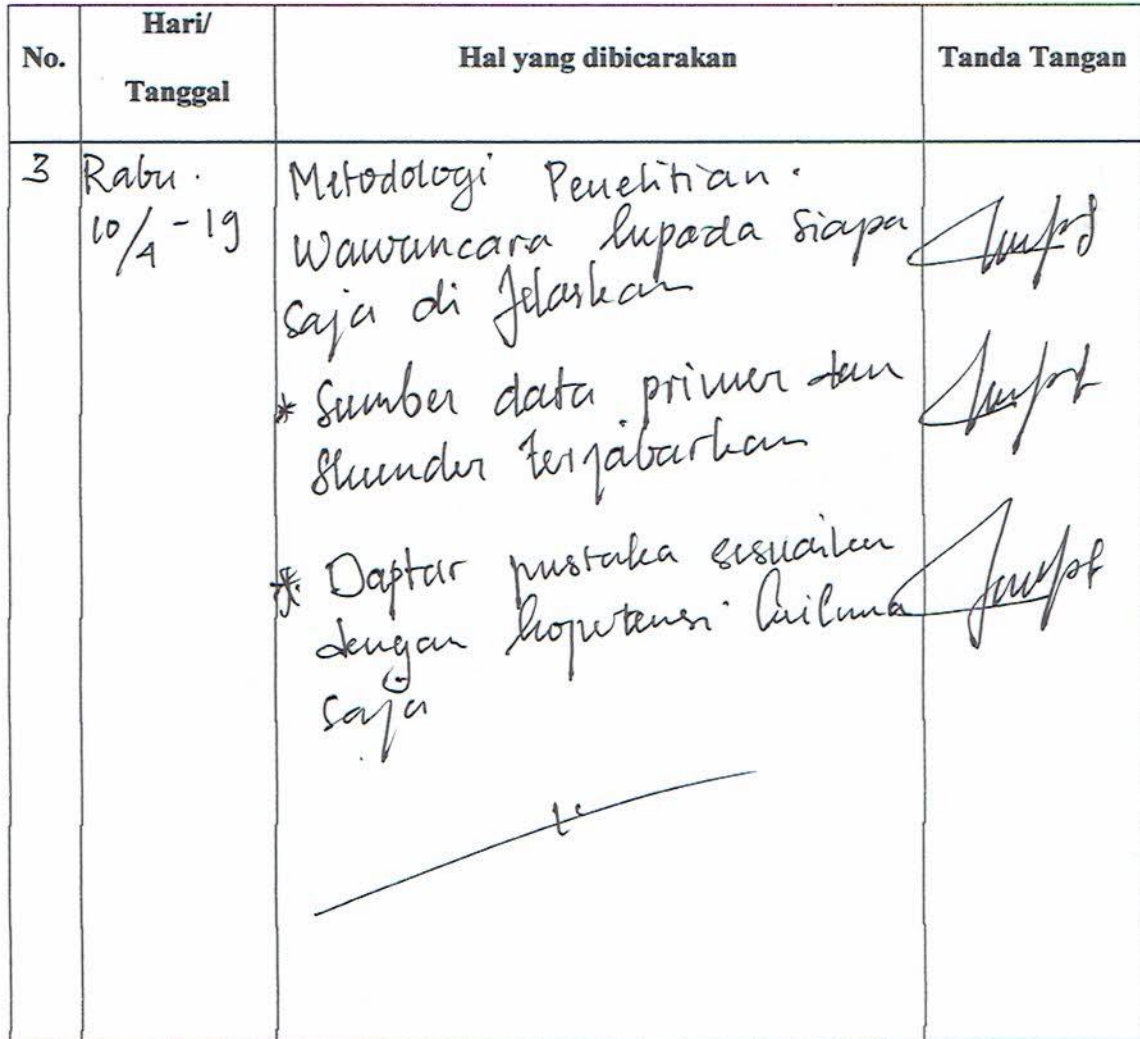 No.
Hari/
Tanggal
Hal yang dibicarakan
Tanda Tangan
3
Rabu.
10/4-19
Metodologi Penelitian.
Wawancara kepada Siapa
saja di Jelaskan
* Sumber data primer dan
Skunder terjabarkan
* Daptar pustaka sesuaikan
dengan kopetensi
saja